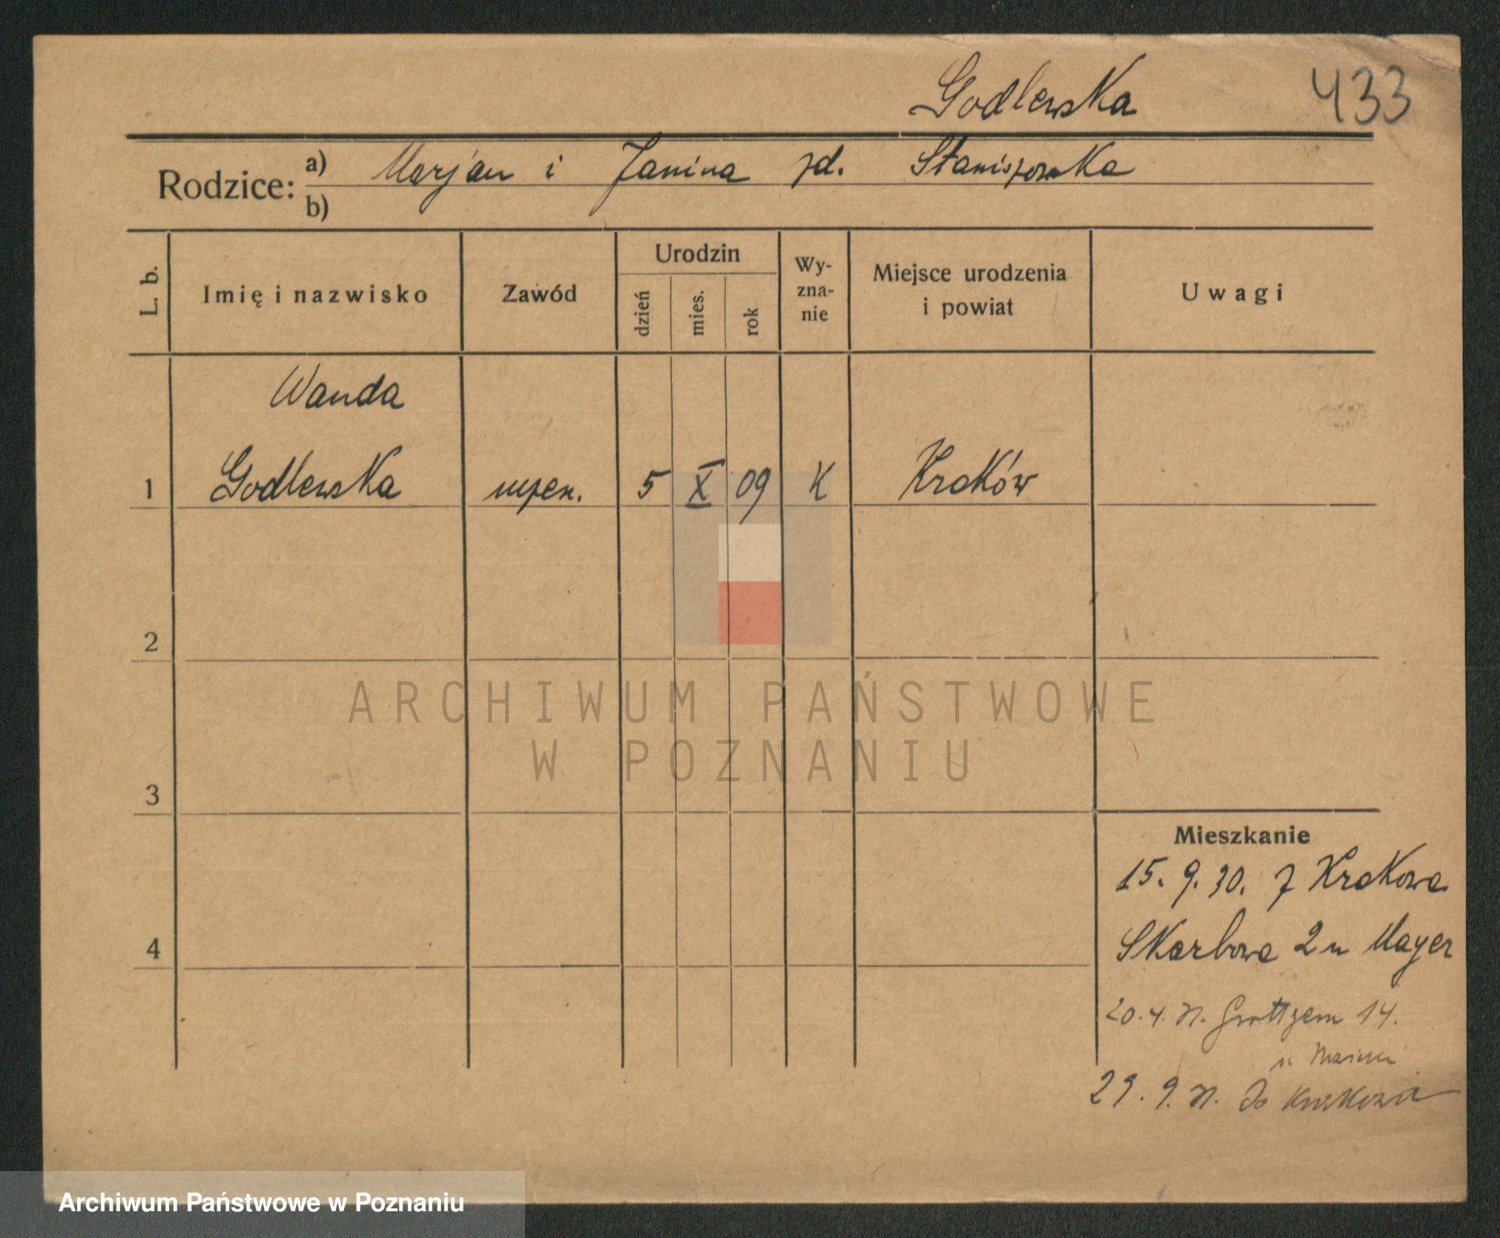 Godlewska 433
Rodzice: a) Marjan i Janina zd. Staniszewska
b)
L. b. Imię i nazwisko Zawód Urodzin dzień mies. rok Wyzna-nie Miejsce urodzenia i powiat Uwagi
Wanda
1 Godlewska 5 X 09 K Kraków
2
3
4
ARCHIWUM PAŃSTWOWE
W POZNANIU
Mieszkanie
15. 9. 30. z Krakowa
Skarbowa 2 u Mayer
20. 4. 31. 14.
u
29. 9. 31. do Krakowa
Archiwum Państwowe w Poznaniu